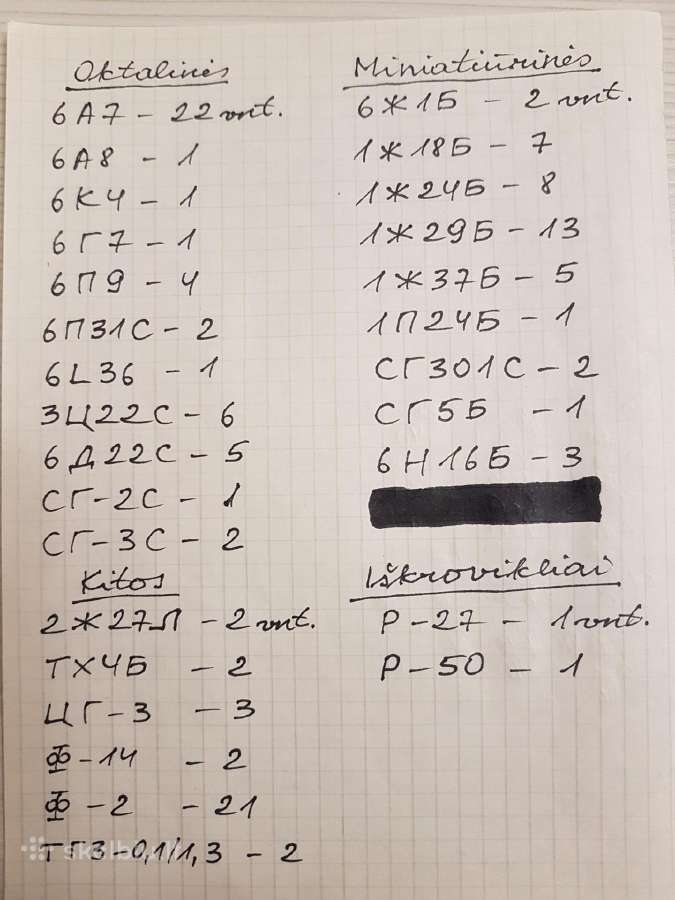 Oktalinės
6А7 – 22 vnt.
6А8 – 1
6К4 – 1
6Г7 – 1
6П9 – 4
6П31С – 2
6L36 – 1
3Ц22С – 6
6Д22С – 5
СГ-2С – 1
СГ-3С – 2
Kitos
2Ж27Л – 2 vnt.
ТХ4Б – 2
ЦГ-3 – 3
Ф-14 – 2
Ф-2 – 21
ТГ3-0,1/1,3 – 2
Miniatiūrinės
6Ж1Б – 2 vnt.
1Ж18Б – 7
1Ж24Б – 8
1Ж29Б – 13
1Ж37Б – 5
1П24Б – 1
СГ301С – 2
СГ5Б – 1
6Н16Б – 3
Iškrovikliai
Р-27 – 1 vnt.
Р-50 – 1